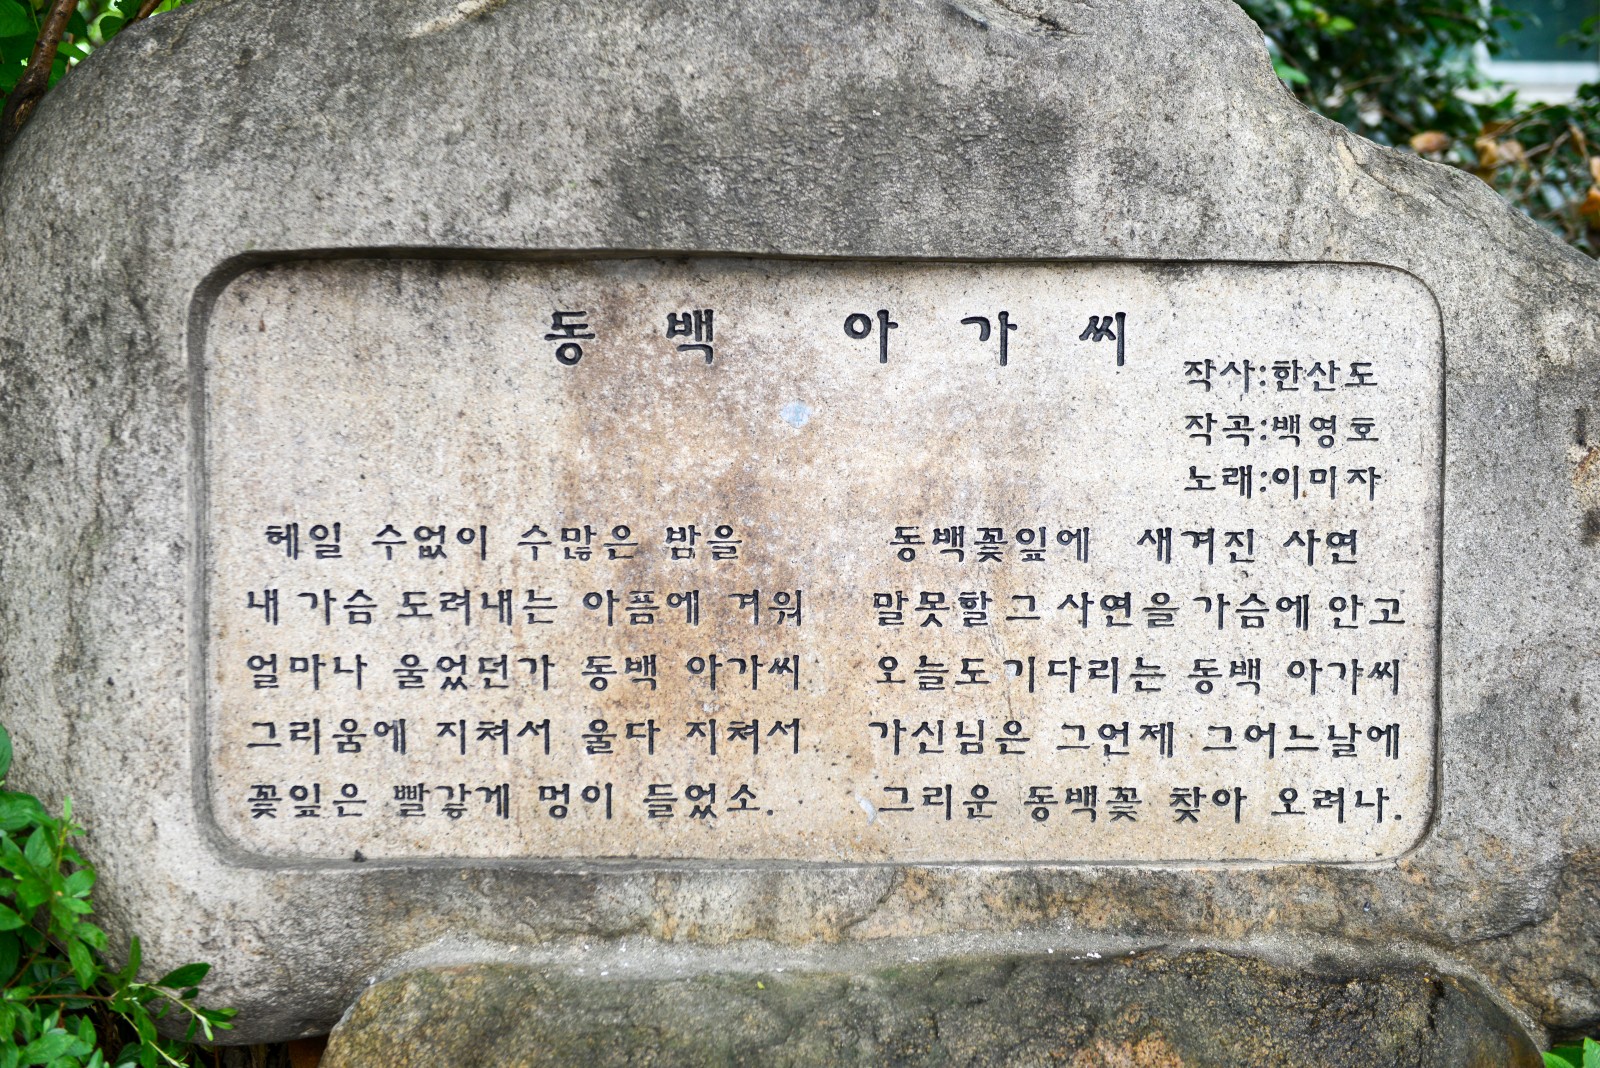 동백 아가씨
작사:한산도
작곡:백영호
노래:이미자
헤일 수없이 수많은 밤을
내 가슴 도려내는 아픔에 겨워
얼마나 울었던가 동백 아가씨
그리움에 지쳐서 울다 지쳐서
꽃잎은 빨갛게 멍이 들었소.
동백꽃잎에 새겨진 사연
말못할 그 사연을 가슴에 안고
오늘도 기다리는 동백 아가씨
가신님은 그언제 그어느날에
그리운 동백꽃 찾아 오려나.